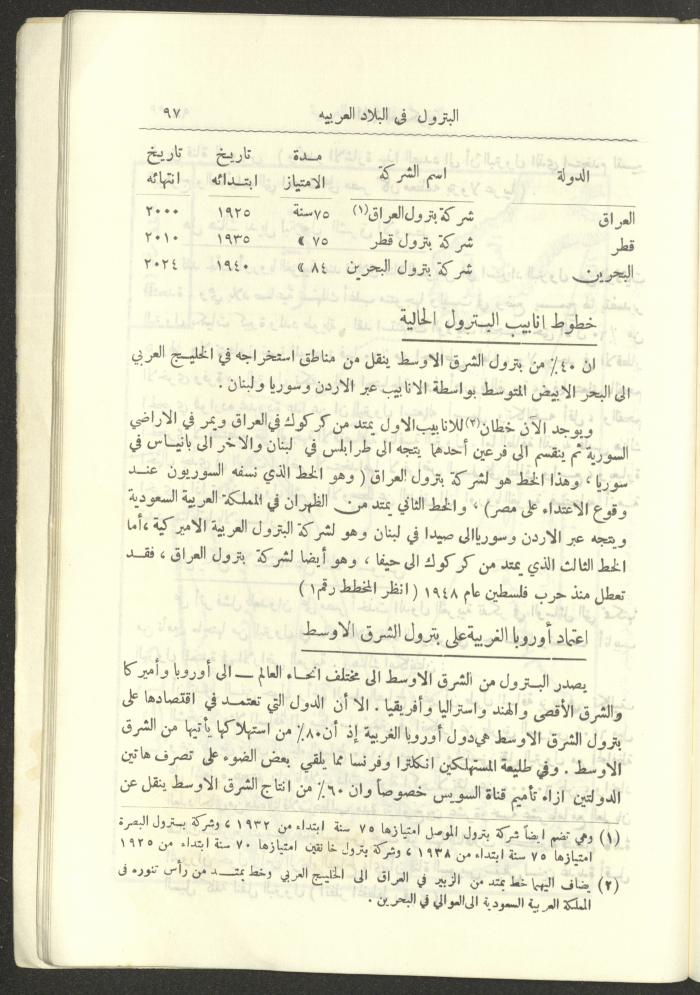 البترول في البلاد العربيه ٩٧
الدولة اسم الشركة مدة الامتياز تاريخ ابتدائه تاريخ انتهائه
العراق شركة بترول العراق(١) ٧٥ سنة ١٩٢٥ ٢٠٠٠
قطر شركة بترول قطر ٧٥ » ١٩٣٥ ٢٠١٠
البحرين شركة بترول البحرين ٨٤ » ١٩٤٠ ٢٠٢٤
خطوط انابيب البترول الحالية
ان ٤٠٪ من بترول الشرق الاوسط ينقل من مناطق استخراجه في الخليج العربي
الى البحر الابيض المتوسط بواسطة الانابيب عبر الاردن وسوريا ولبنان .
ويوجد الآن خطان(٢) للانابيب الاول يمتد من كركوك في العراق ويمر في الاراضي
السورية ثم ينقسم الى فرعين أحدهما يتجه الى طرابلس في لبنان والاخر الى بانياس في
سوريا ، وهذا الخط هو لشركة بترول العراق ( وهو الخط الذي نسفه السوريون عند
وقوع الاعتداء على مصر ) ، والخط الثاني يمتد من الظهران في المملكة العربية السعودية
ويتجه عبر الاردن وسوريا الى صيدا في لبنان وهو لشركة البترول العربية الاميركية ، أما
الخط الثالث الذي يمتد من كركوك الى حيفا ، وهو أيضا لشركة بترول العراق ، فقد
تعطل منذ حرب فلسطين عام ١٩٤٨ ( انظر المخطط رقم ١ )
اعتماد أوروبا الغربية على بترول الشرق الاوسط
يصدر البترول من الشرق الاوسط الى مختلف انحاء العالم — الى أوروبا وأميركا
والشرق الأقصى والهند واستراليا وأفريقيا . الا أن الدول التي تعتمد في اقتصادها على
بترول الشرق الاوسط هي دول أوروبا الغربية إذ أن ٨٠٪ من استهلاكها يأتيها من الشرق
الاوسط . وفي طليعة المستهلكين انكلترا وفرنسا مما يلقي بعض الضوء على تصرف هاتين
الدولتين ازاء تأميم قناة السويس خصوصاً وان ٦٠٪ من انتاج الشرق الاوسط ينقل عن
(١) وهي تضم ايضاً شركة بترول الموصل امتيازها ٧٥ سنة ابتداء من ١٩٣٢ ، وشركة بترول البصرة
امتيازها ٧٥ سنة ابتداء من ١٩٣٨ ، وشركة بترول خانقين امتيازها ٧٠ سنة ابتداء من ١٩٢٥
(٢) يضاف اليهما خط يمتد من الزبير في العراق الى الخليج العربي وخط يمتد من رأس تنوره في
المملكة العربية السعودية الى العوالي في البحرين .